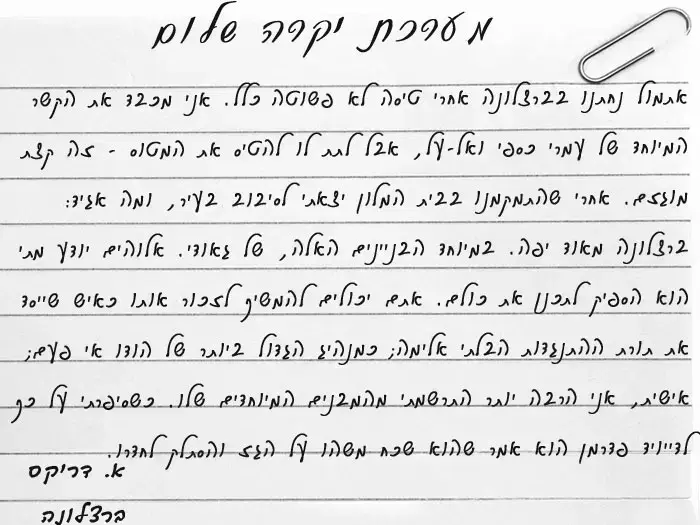 מערכת יקרה שלום
אתמול נחתנו בברצלונה אחרי טיסה לא פשוטה כלל. אני מכבד את הקשר
המיוחד של עמרי כספי ואל-על, אבל לתת לו להטיס את המטוס - זה קצת
מוגזם. אחרי שהתמקמנו בבית המלון יצאתי לסיבוב בעיר, ומה אגיד:
ברצלונה מאוד יפה. במיוחד הבניינים האלה, של גאודי. אלוהים יודע מתי
הוא הספיק לתכנן את כולם. אתם יכולים להמשיך לזכור אותו כאיש שייסד
את תורת ההתנגדות הבלתי אלימה; כמנהיג הגדול ביותר של הודו אי פעם;
אישית, אני הרבה יותר התרשמתי מהמבנים המיוחדים שלו. כשסיפרתי על כך
לדייויד פדרמן הוא אמר שהוא שכח משהו על הגז והסתלק לחדרו.
א. דריקס
ברצלונה